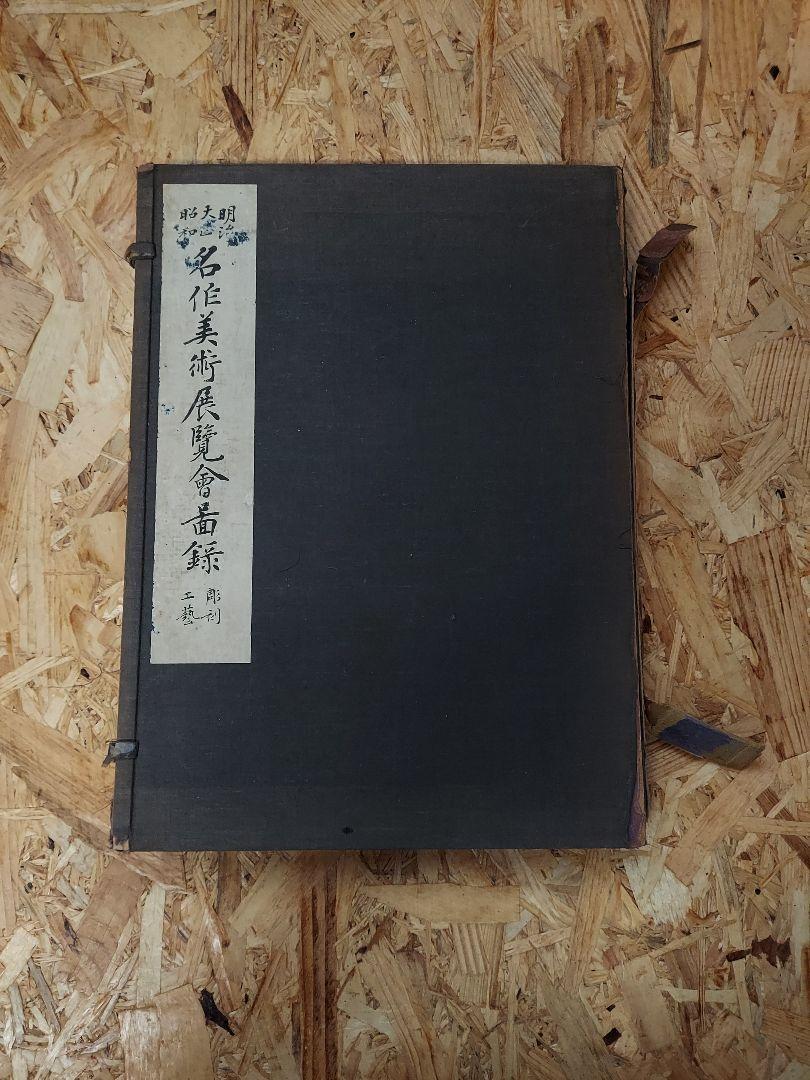 明治
大正
昭和
名作美術展覽會啚録
彫刻
工藝